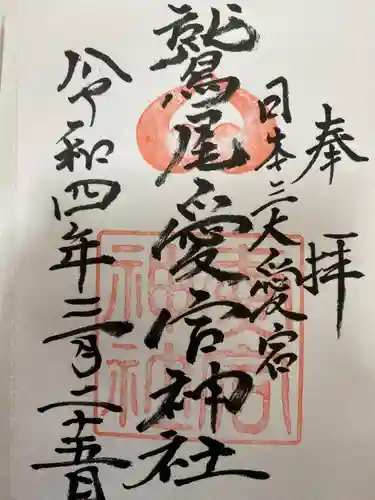 奉拝
日本三大愛宕
鷲尾愛宕神社
令和四年三月二十五日
愛宕神社